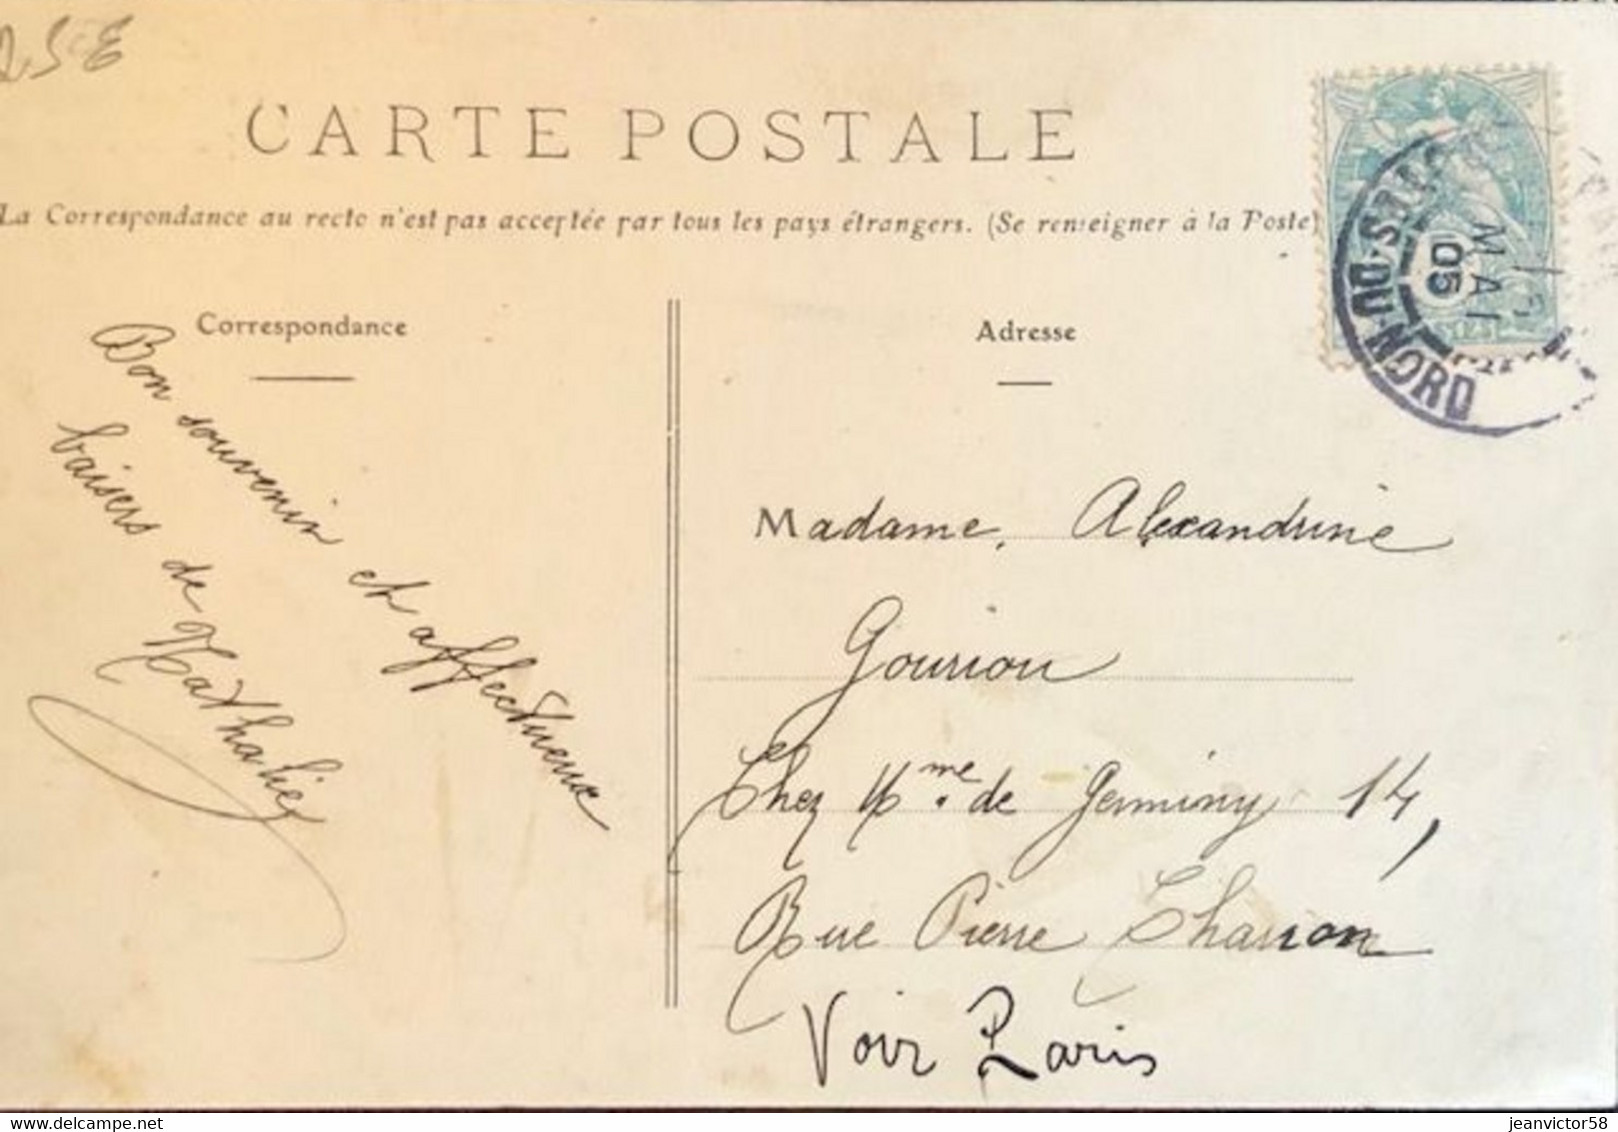 CARTE POSTALE
La Correspondance au recto n'est pas acceptée par tous les pays étrangers. (Se renseigner à la Poste)
Correspondance
Bon souvenir et affectueux
baisers de
Nathalie
Adresse
Madame. Alexandrine
Gourion
Chez Mme. de Germiny 14,
Rue Pierre Charron
Voir Paris
MAI
05
DU-NORD
delcampe.net
jeanvictor58